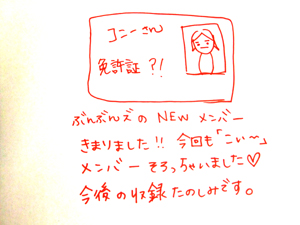 コニーさん
免許証?!
ぶんぶんズの NEW メンバー
きまりました!! 今回も「こい〜」
メンバー そろっちゃいました♡
今後の収録たのしみです。